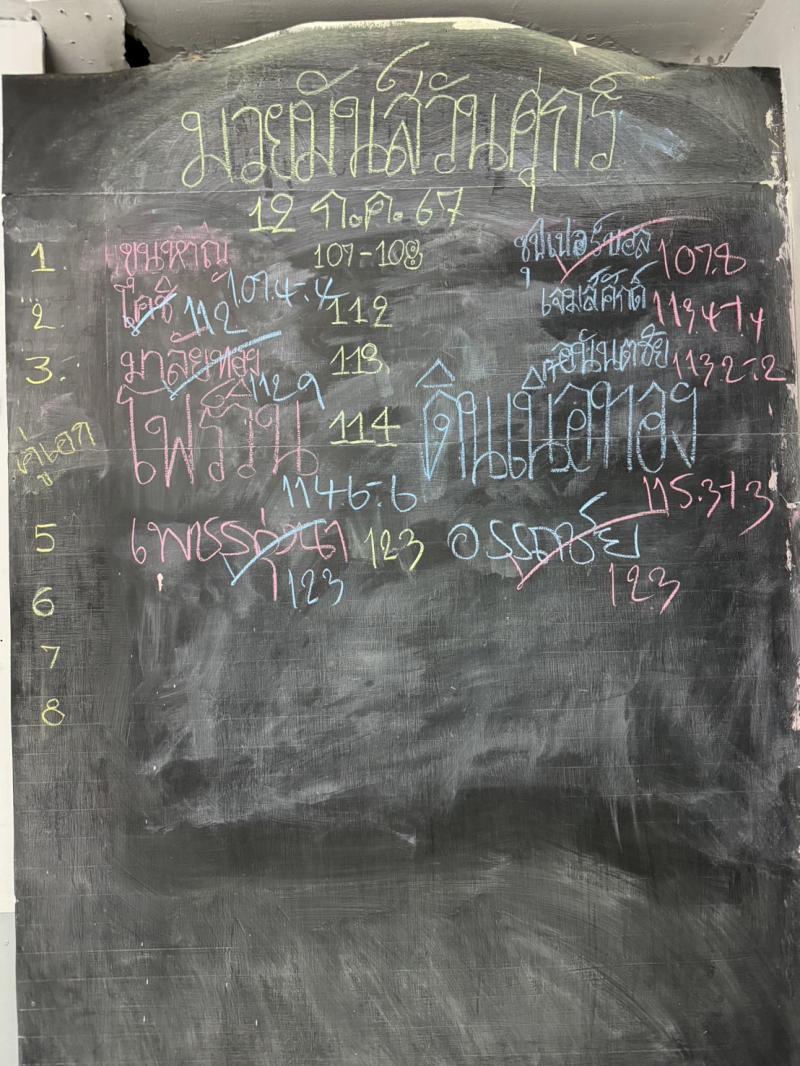 มวยมันส์วันศุกร์
12 ก.ค. 67
1. ขุนหาญ 107-108 ซุปเปอร์บอล 107.8
107.4-.4
2. โคชิ 112 112 เจมส์ศักดิ์ 113.4+.4
3. มาลัยทอง 113. อนันตชัย 113.2-.2
112.9
คู่เอก ไฟร์วัน 114 ดินเนื้อทอง
114.6-.6 115.3+.3
5 เพชรรุ่งนา 123 อรรถชัย
123 123
6
7
8